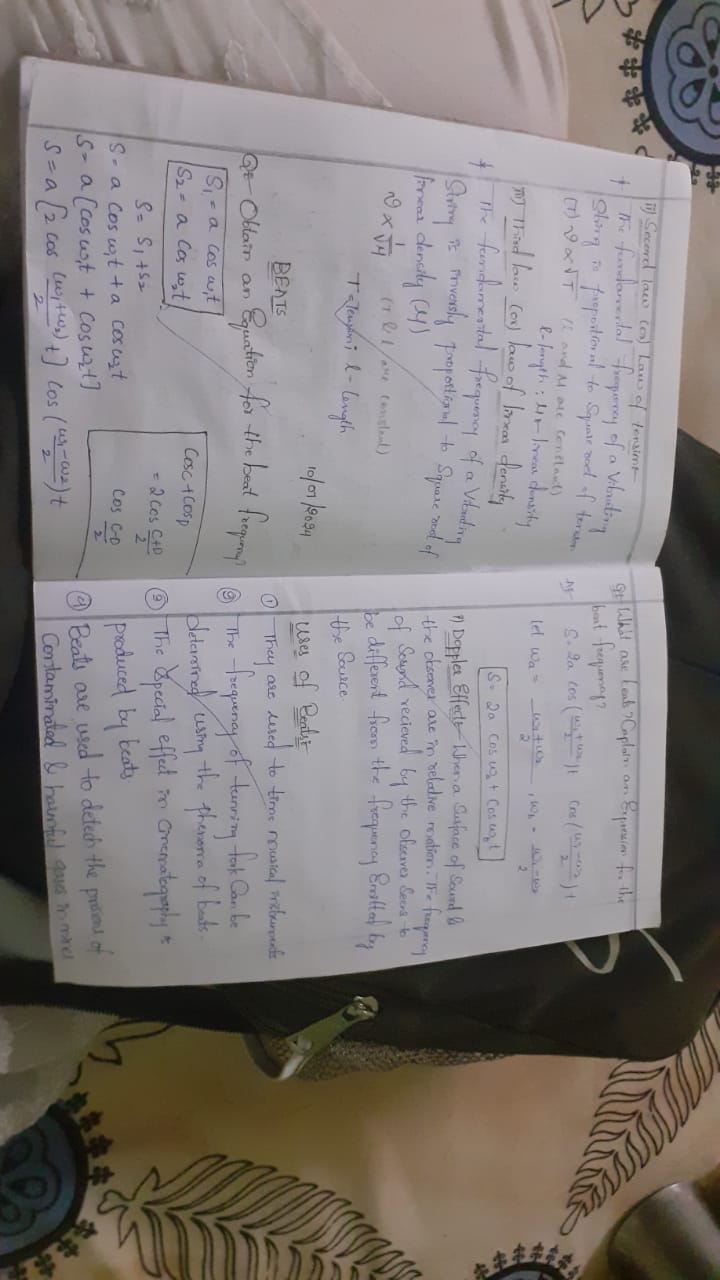 ii) Second law (or) Law of tension:-
* The fundamental frequency of a Vibrating
String is propotional to Square root of tension
(T) ν ∝ √T (l and μ are constant)
l-length ; μ - linear density
iii) Third law (or) law of linear density
* The fundamental frequency of a Vibrating
String is inversly propotional to Square root of
linear density (μ)
ν ∝ 1/√μ (T & l are constant)
T = Tension; l - Length
BEATS
Q:- Obtain an Equation for the beat frequency?
S₁ = a cos ω₁t
S₂ = a Cos ω₂t
S = S₁ + S₂
S = a Cos ω₁t + a cos ω₂t
S = a [cos ω₁t + Cos ω₂t]
S = a [2 cos (ω₁+ω₂)/2 t] cos (ω₁-ω₂/2) t
CosC + CosD
= 2 Cos C+D/2
Cos C-D/2
Q:- What are beats? Explain an Expression for the
beat frequency?
S = 2a cos (ω₁+ω₂/2)t cos (ω₁-ω₂/2)t
let ωa = ω₁+ω₂/2 , ωb = ω₁-ω₂/2
S = 2a Cos ωat Cos ωbt
Doppler Effect:- When a Surface of Sound &
the observer are in relative motion. The frequency
of Sound recieved by the observer Seens to
be different from the frequency Emitted by
the Source.
Uses of Beats:-
① They are used to time musical instruments
② The frequency of tunning fork Can be
determined using the phenoma of beats.
③ The Special effect in Cinematography is
produced by beats.
④ Beats are used to detech the of
Contaminated & harmful gases in mines